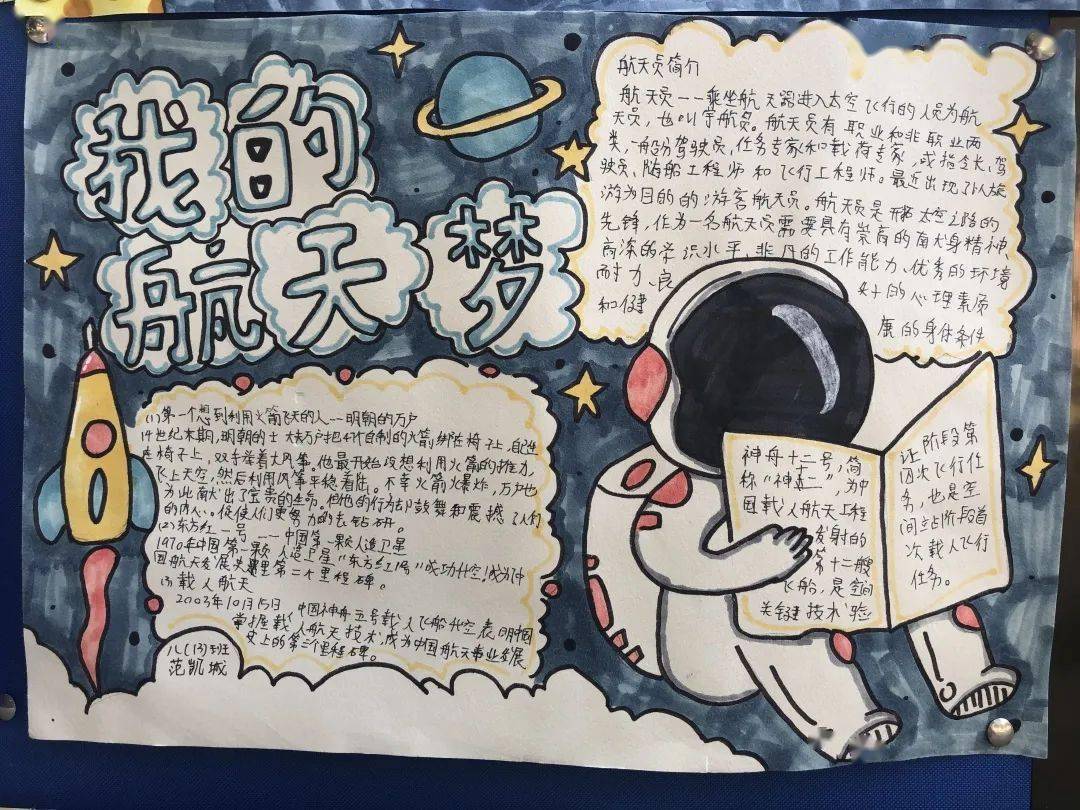 我的
航天梦
航天员简介
航天员--乘坐航天器进入太空飞行的人员为航
天员,也叫宇航员。航天员有职业和非职业两
类,一般分驾驶员,任务专家和载荷专家,或指令长、驾
驶员、随船工程师和飞行工程师。最近出现了以旅
游为目的的游客航天员。航天员是开辟太空之路的
先锋,作为一名航天员需要具有崇高的献身精神、
高深的学识水平、非凡的工作能力、优秀的环境
耐力、良好的心理素质
和健康的身体条件
(1)第一个想到利用火箭飞天的人--明朝的万户
14世纪末期,明朝的士大夫万户把47个自制的火箭绑在椅子上,自己坐
在椅子上,双手举着大风筝。他最开始设想利用火箭的推力,
飞上天空,然后利用风筝平稳着陆。不幸火箭爆炸,万户也
为此献出了宝贵的生命。但他的行为却鼓舞和震撼了人们
的内心。促使人们更努力的去钻研。
(2)东方红一号--中国第一颗人造卫星
1970年中国第一颗人造卫星"东方红1号"成功升空!成为中
国航天发展史里第二个里程碑。
(3)载人航天
2003年10月15日中国神舟五号载人飞船升空表明中国
掌握载人航天技术,成为中国航天事业发展
史上的第三个里程碑。
八(13)班
范凯城
神舟十二号,简
称"神十二",为中
国载人航天工程
发射的
第十二艘
飞船,是空间
关键技术验
证阶段第
四次飞行任
务,也是空
间站阶段首
次载人飞行
任务。